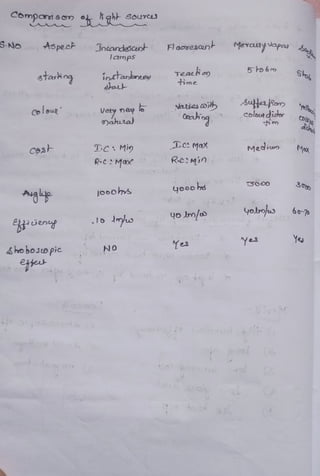 Comparison of light sources
S.No Aspect Incandescent lamps Flaorescent Mercury vapour
starting instantaneous start reaction time 5 to 6m
colour very nay to natural varies with coating suffer from colour distortim
cost I.C: Min I.C: Max Medium Max
R.C: Max R.C: Min
Avg life 1000 hrs 4000 hrs 3000 3000
Efficiency 10 lm/w 40 lm/w 40lm/w 60-70
Shoboscopic effect NO Yes Yes Yes